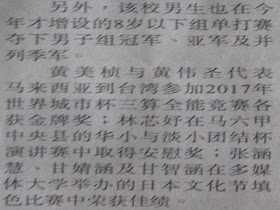 另外，该校男生也在今
年才增设的8岁以下组单打赛
夺下男子组冠军、亚军及并
列季军。
黄美桢与黄伟圣代表
马来西亚到台湾参加2017年
世界城市杯三算全能竞赛各
获金牌奖；林芯妤在马六甲
中央县的华小与淡小团结杯
演讲赛中取得安慰奖；张涵
慧、甘婧涵及甘智涵在多媒
体大学举办的日本文化节填
色比赛中荣获佳绩。